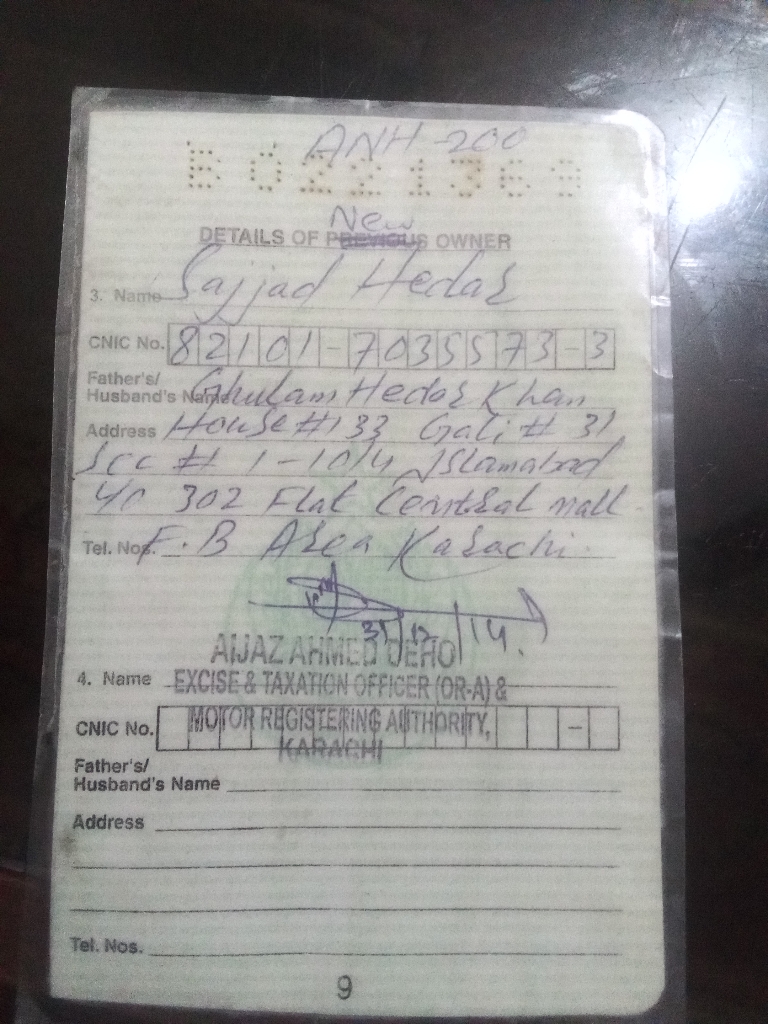 ANH-200
B 0221369
New
DETAILS OF PREVIOUS OWNER
3. Name Sajjad Hedar
CNIC No. 82101-7035573-3
Father's/
Husband's Name Ghulam Hedar Khan
Address House # 133 Gali # 31
Sec # 1-10/4 Islamabad
302 Flat Central mall
Tel. Nos. F.B Area Karachi.
31/12/14.
AIJAZ AHMED DEHO
4. Name EXCISE & TAXATION OFFICER (OR-A) &
CNIC No. MOTOR REGISTERING AUTHORITY, -
KARACHI
Father's/
Husband's Name
Address
Tel. Nos.
9